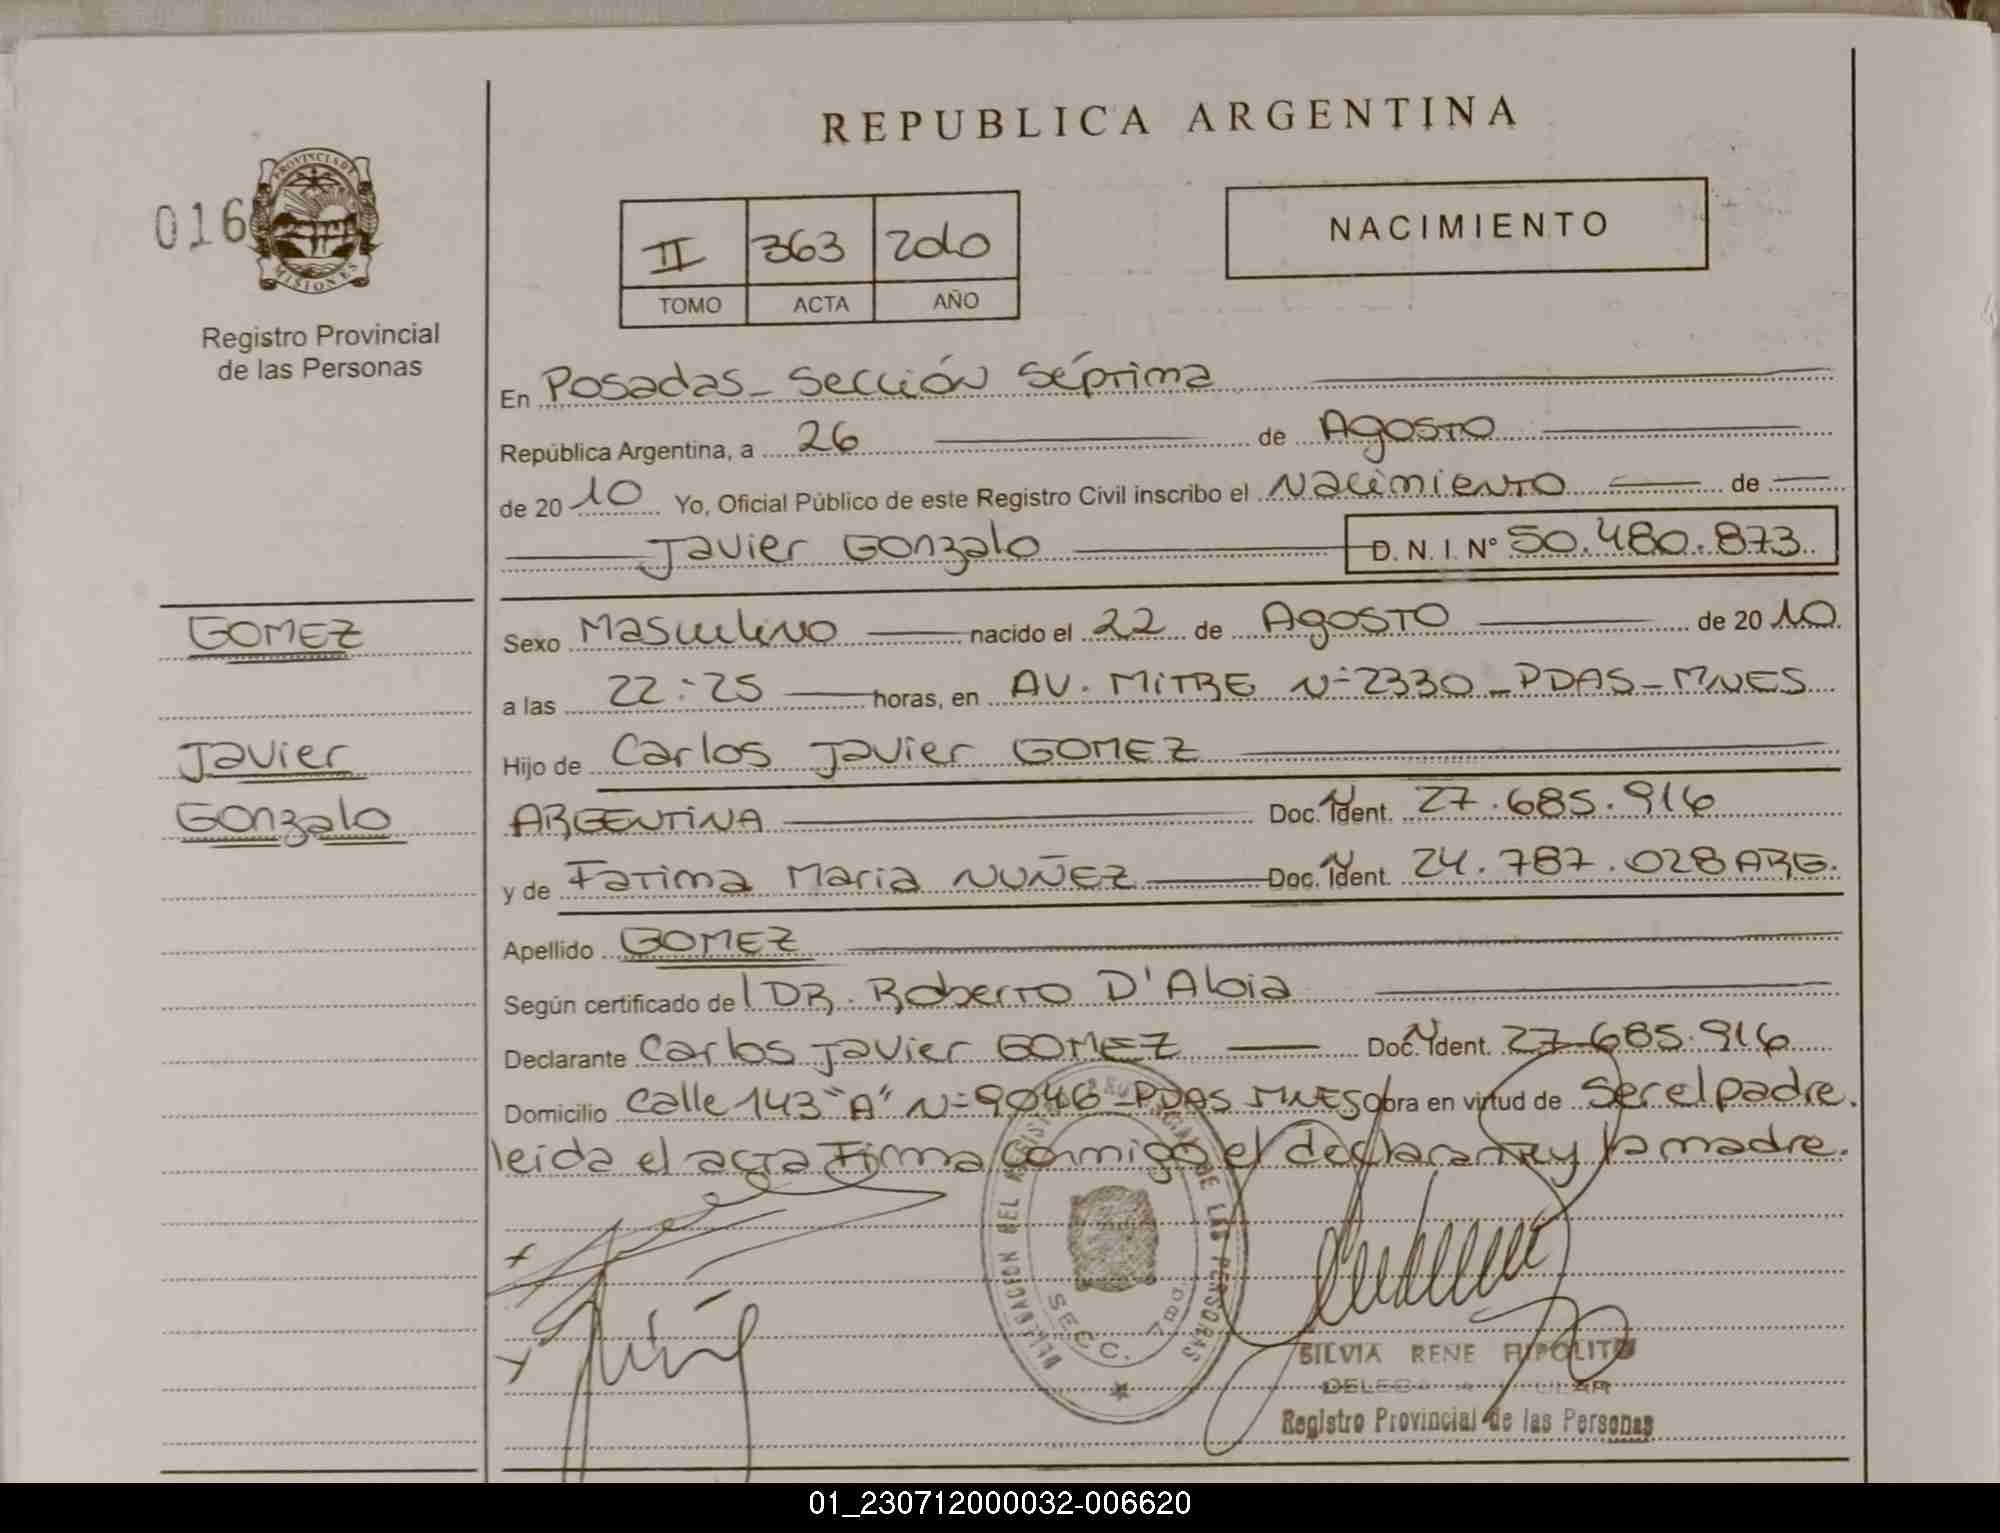 REPUBLICA ARGENTINA
016
PROVINCIA DE MISIONES
Registro Provincial
de las Personas
II 363 2010
TOMO ACTA AÑO
NACIMIENTO
En Posadas - Sección Séptima
República Argentina, a 26 de Agosto
de 2010 Yo, Oficial Público de este Registro Civil inscribo el Nacimiento de
Javier Gonzalo D. N. I. N° 50.480.873
GOMEZ
Javier
Gonzalo
Sexo Masculino nacido el 22 de Agosto de 2010
a las 22:25 horas, en AV. MITRE N=2330 - PDAS - MNES
Hijo de Carlos Javier GOMEZ
ARGENTINA Doc. Ident. 27.685.916
y de Fatima Maria NUÑEZ Doc. Ident. 24.787.028 ARG.
Apellido GOMEZ
Según certificado del DR. Roberto D'Aloia
Declarante Carlos Javier GOMEZ Doc. Ident. 27.685.916
Domicilio Calle 143 "A" N=9046 - PDAS MNES Obra en virtud de ser el padre.
leida el acta Firma conmigo el declarante y la madre.
DELEGACION DEL REGISTRO PROVINCIAL DE LAS PERSONAS
SECC. 7MA
SILVIA RENE HIPOLITO
Registro Provincial de las Personas
01_230712000032-006620